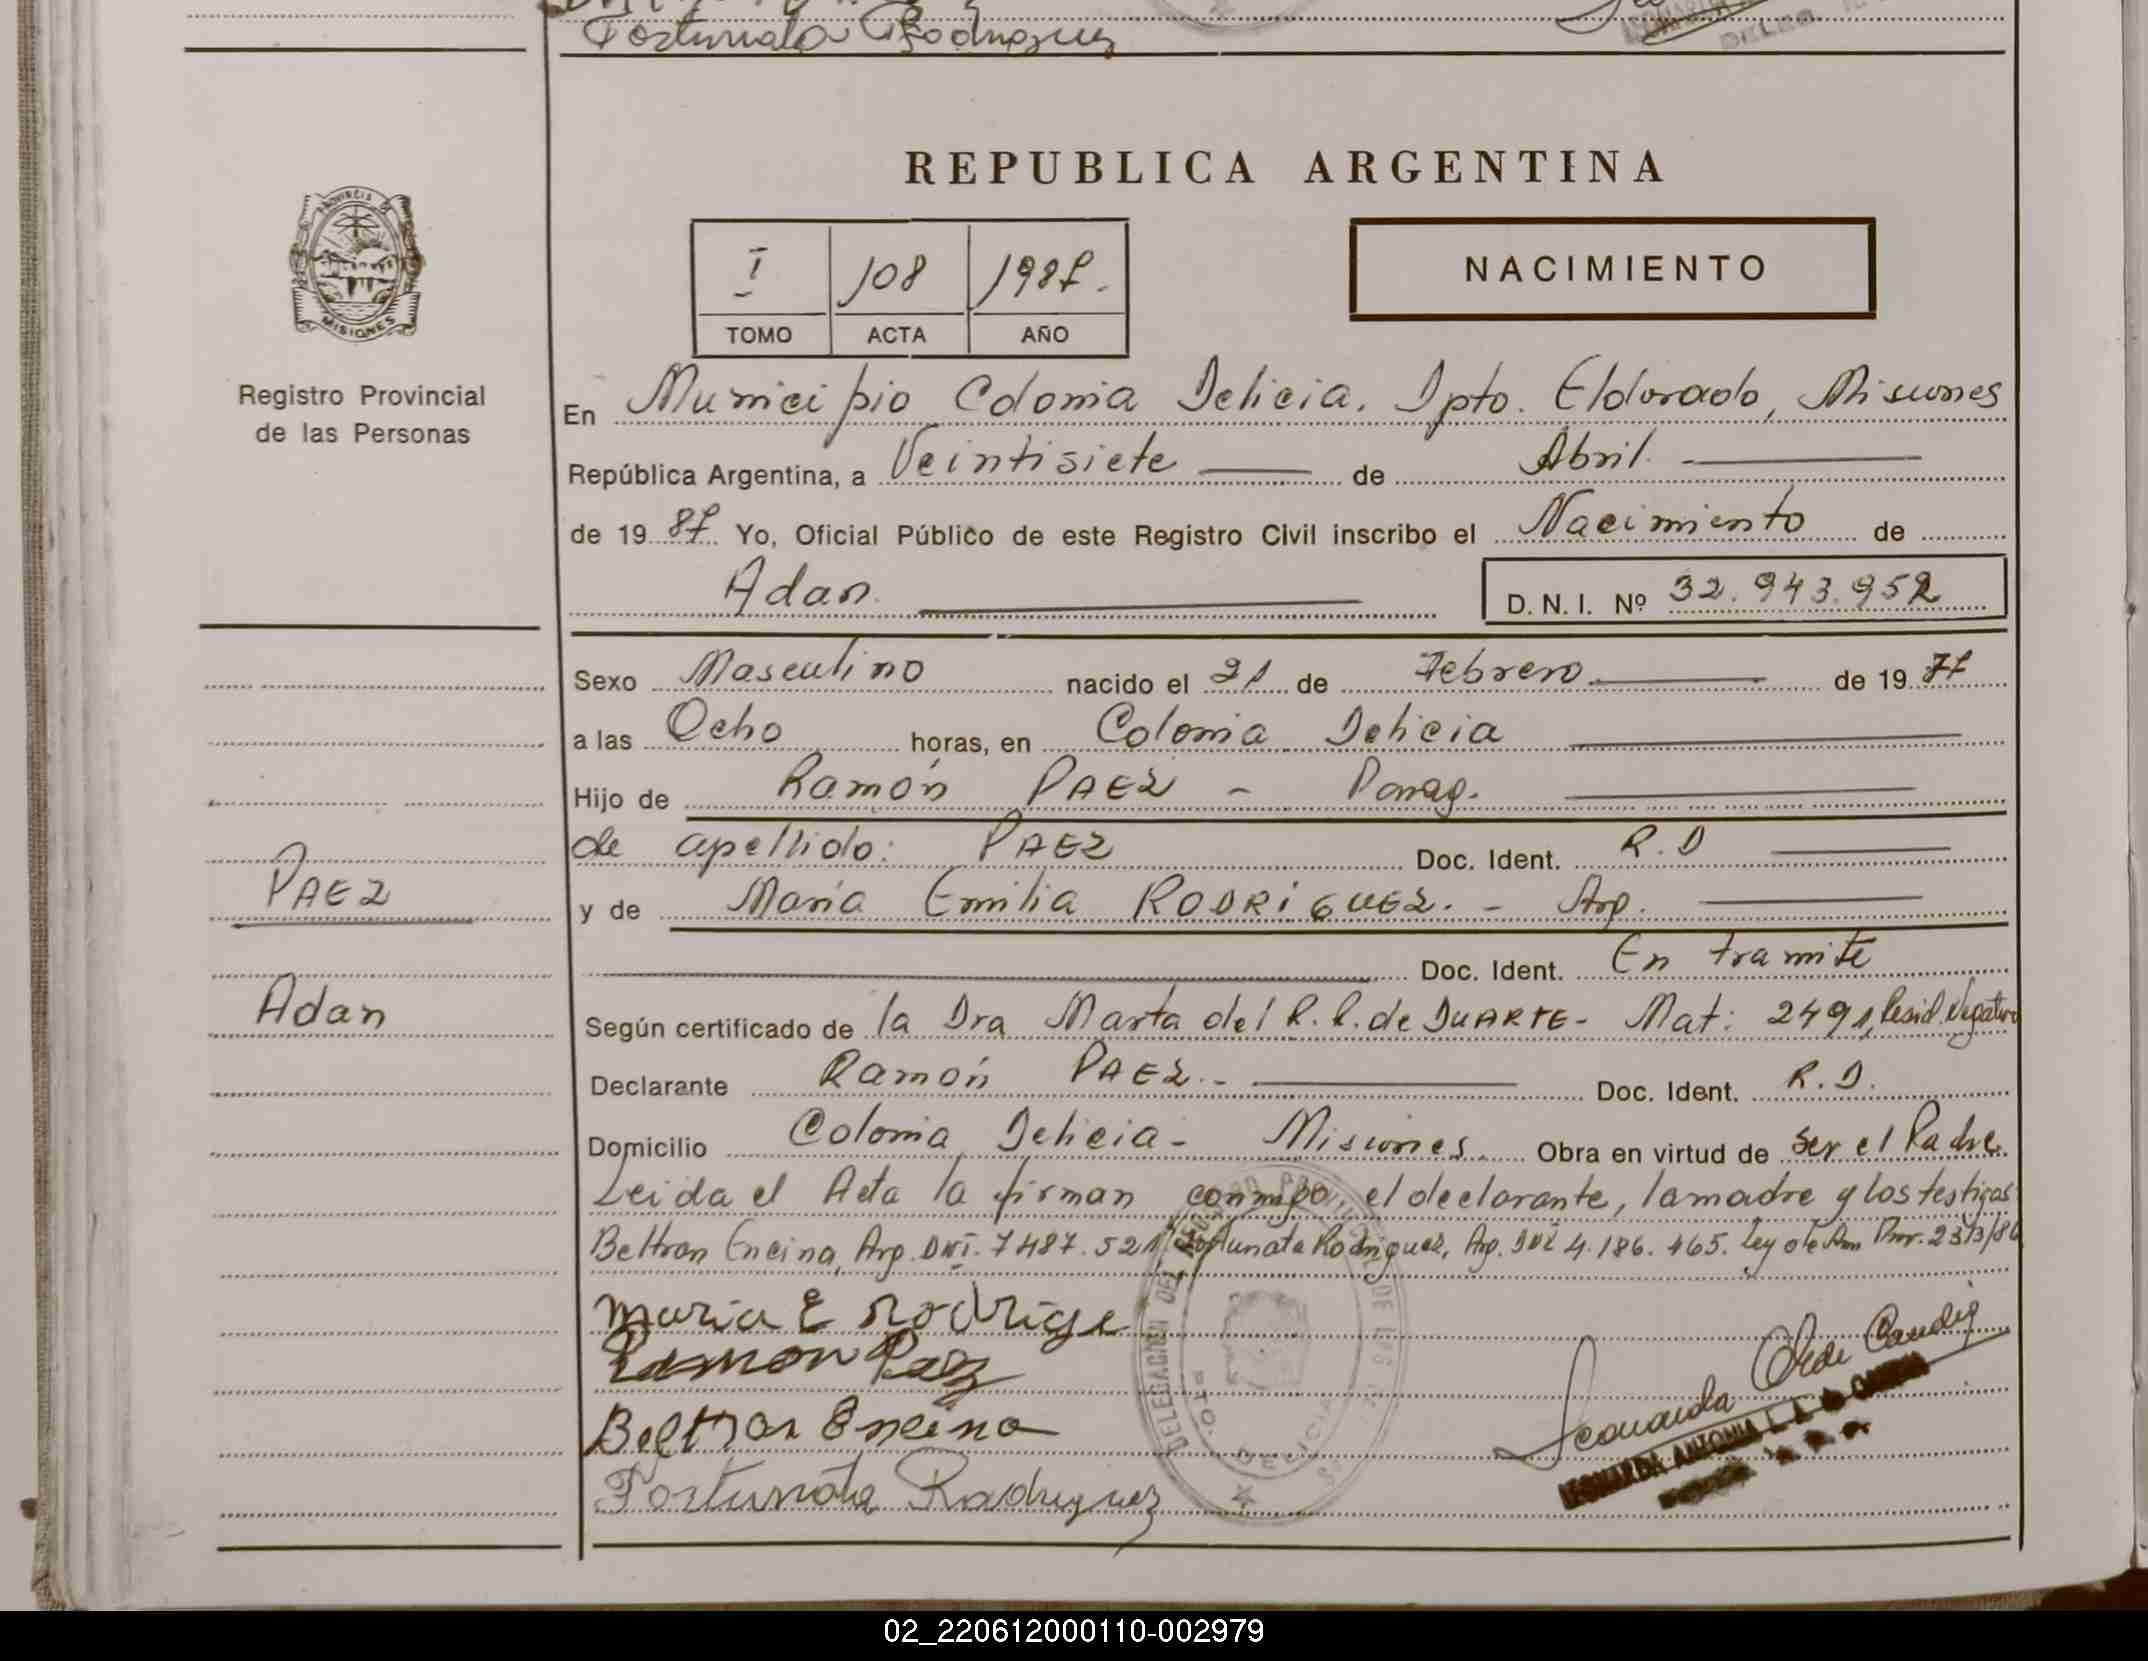 Fortunata Rodriguez
PROVINCIA DE
MISIONES
Registro Provincial
de las Personas
REPUBLICA ARGENTINA
I 108 1987.
TOMO ACTA AÑO
NACIMIENTO
En Municipio Colonia Delicia. Dpto. Eldorado, Misiones
República Argentina, a Veintisiete de Abril.
de 19 87 Yo, Oficial Público de este Registro Civil inscribo el Nacimiento de
Adan D. N. I. Nº 32.943.952
Sexo Masculino nacido el 21 de Febrero de 19 77
a las Ocho horas, en Colonia Delicia
Hijo de Ramón PAEZ - Parag.
de apellido: PAEZ Doc. Ident. R.D
PAEZ
y de Maria Emilia RODRIGUEZ. - Arg.
Doc. Ident. En tramite
Adan
Según certificado de la Dra Marta del R. R. de DUARTE- Mat: 2491, Resid. Negativo
Declarante Ramón PAEZ.- Doc. Ident. R.D.
Domicilio Colonia Delicia- Misiones. Obra en virtud de ser el Padre.
Leida el Acta la firman conmigo, el declarante, la madre y los testigos
Beltran Encina, Arg. DNI. 7487.521, Fortunata Rodriguez, Arg. DNI 4.186.465. Ley de Prov. 23/3/86
Maria E Rodrige
Ramon Paez
Beltran Encina
Fortunata Rodriguez
DELICIA
Leonarda
LEONARDA ANTONIA
02_220612000110-002979